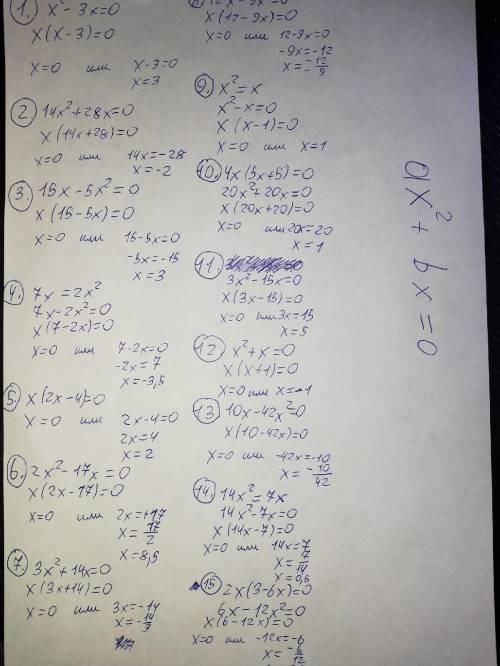 1. x² - 3x = 0
x(x-3)=0
x=0 или x-3=0
x=3
2. 14x² + 28x = 0
x(14x+28)=0
x=0 или 14x=-28
x=-2
3. 15x - 5x² = 0
x(15-5x)=0
x=0 или 15-5x=0
-5x=-15
x=3
4. 7x = 2x²
7x-2x²=0
x(7-2x)=0
x=0 или 7-2x=0
-2x=7
x=-3,5
5. x(2x-4)=0
x=0 или 2x-4=0
2x=4
x=2
6. 2x²-17x=0
x(2x-17)=0
x=0 или 2x=+17
x=17/2
x=8,5
7. 3x²+14x=0
x(3x+14)=0
x=0 или 3x=-14
x=-14/3
x(12-9x)=0
x=0 или 12-9x=0
-9x=-12
x=-12/9
9. x²=x
x²-x=0
x(x-1)=0
x=0 или x=1
10. 4x(5x+5)=0
20x²+20x=0
x(20x+20)=0
x=0 или 20x=20
x=1
11.
3x²-15x=0
x(3x-15)=0
x=0 или 3x=15
x=5
12 x²+x=0
x(x+1)=0
x=0 или x=-1
13 10x-42x²=0
x(10-42x)=0
x=0 или -42x=-10
x=-10/42
14. 14x²=7x
14x²-7x=0
x(14x-7)=0
x=0 или 14x=7
x=7/14
x=0,5
15 2x(3-6x)=0
6x-12x²=0
x(6-12x)=0
x=0 или -12x=-6
x=-6/12
ax² + bx = 0